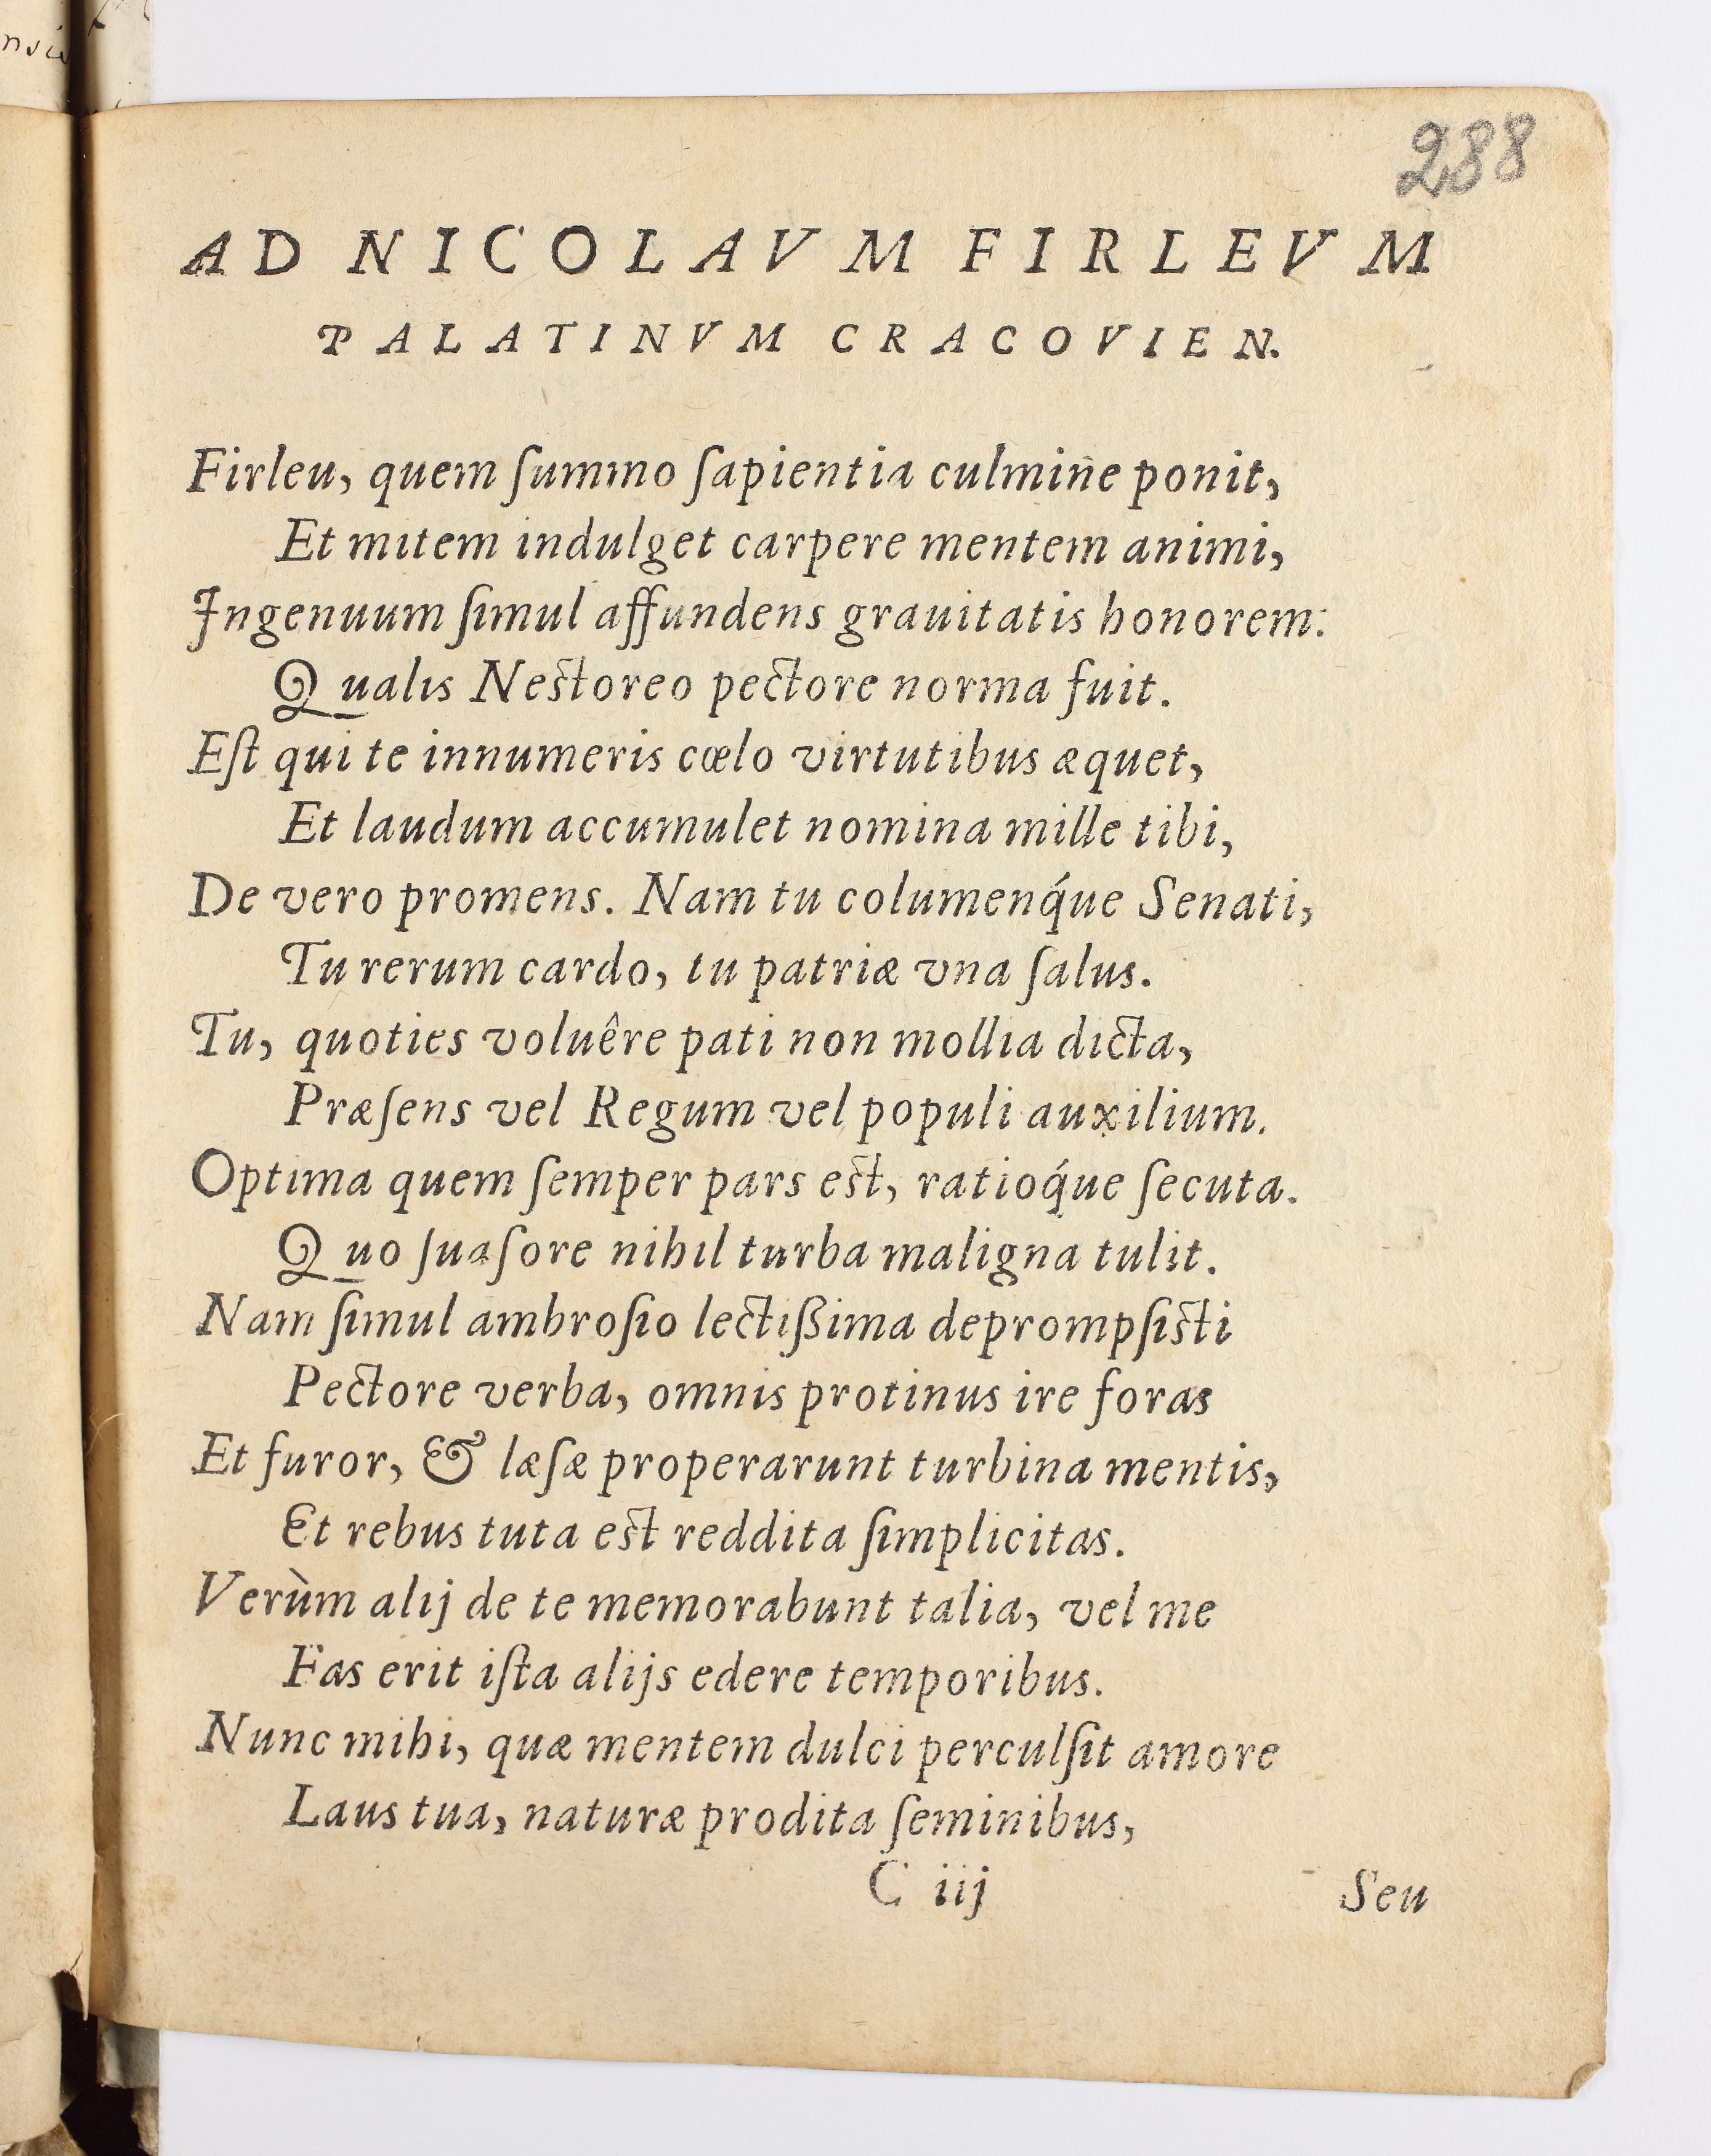 288
AD NICOLAVM FIRLEVM
PALATINVM CRACOVIEN.
Firleu, quem ſummo ſapientia culmine ponit,
Et mitem indulget carpere mentem animi,
Ingenuum ſimul affundens grauitatis honorem:
Qualis Nestoreo pectore norma fuit.
Eſt qui te innumeris cœlo virtutibus æquet,
Et laudum accumulet nomina mille tibi,
De vero promens. Nam tu columenq́ue Senati,
Tu rerum cardo, tu patriæ vna ſalus.
Tu, quoties voluêre pati non mollia dicta,
Præſens vel Regum vel populi auxilium.
Optima quem ſemper pars est, ratioq́ue ſecuta.
Quo ſuaſore nihil turba maligna tulit.
Nam ſimul ambroſio lectißima deprompſisti
Pectore verba, omnis protinus ire foras
Et furor, & læſæ properarunt turbina mentis,
Et rebus tuta est reddita ſimplicitas.
Verùm alij de te memorabunt talia, vel me
Fas erit iſta alijs edere temporibus.
Nunc mihi, quæ mentem dulci perculſit amore
Laus tua, naturæ prodita ſeminibus,
C iij Seu